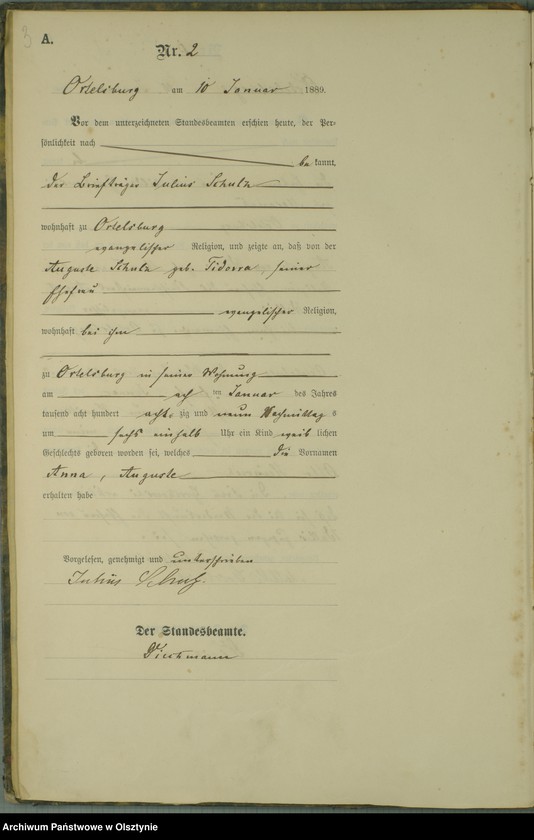 3
A.
Nr. 2
Ortelsburg am 10 Januar 1889.
Vor dem unterzeichneten Standesbeamten erschien heute, der Per-
sönlichkeit nach
be kannt,
der Briefträger Julius Schulz
wohnhaft zu Ortelsburg
evangelischer Religion, und zeigte an, daß von der
Auguste Schulz geb. seiner
Ehefrau
evangelischer Religion,
wohnhaft bei ihm
zu Ortelsburg in seiner Wohnung
am ten Januar des Jahres
tausend acht hundert acht zig und neun Nachmittag s
um sechs einhalb Uhr ein Kind weib lichen
Geschlechts geboren worden sei, welches die Vornamen
Anna, Auguste
erhalten habe
Vorgelesen, genehmigt und unterschrieben
Julius Schulz.
Der Standesbeamte.
Archiwum Państwowe w Olsztynie